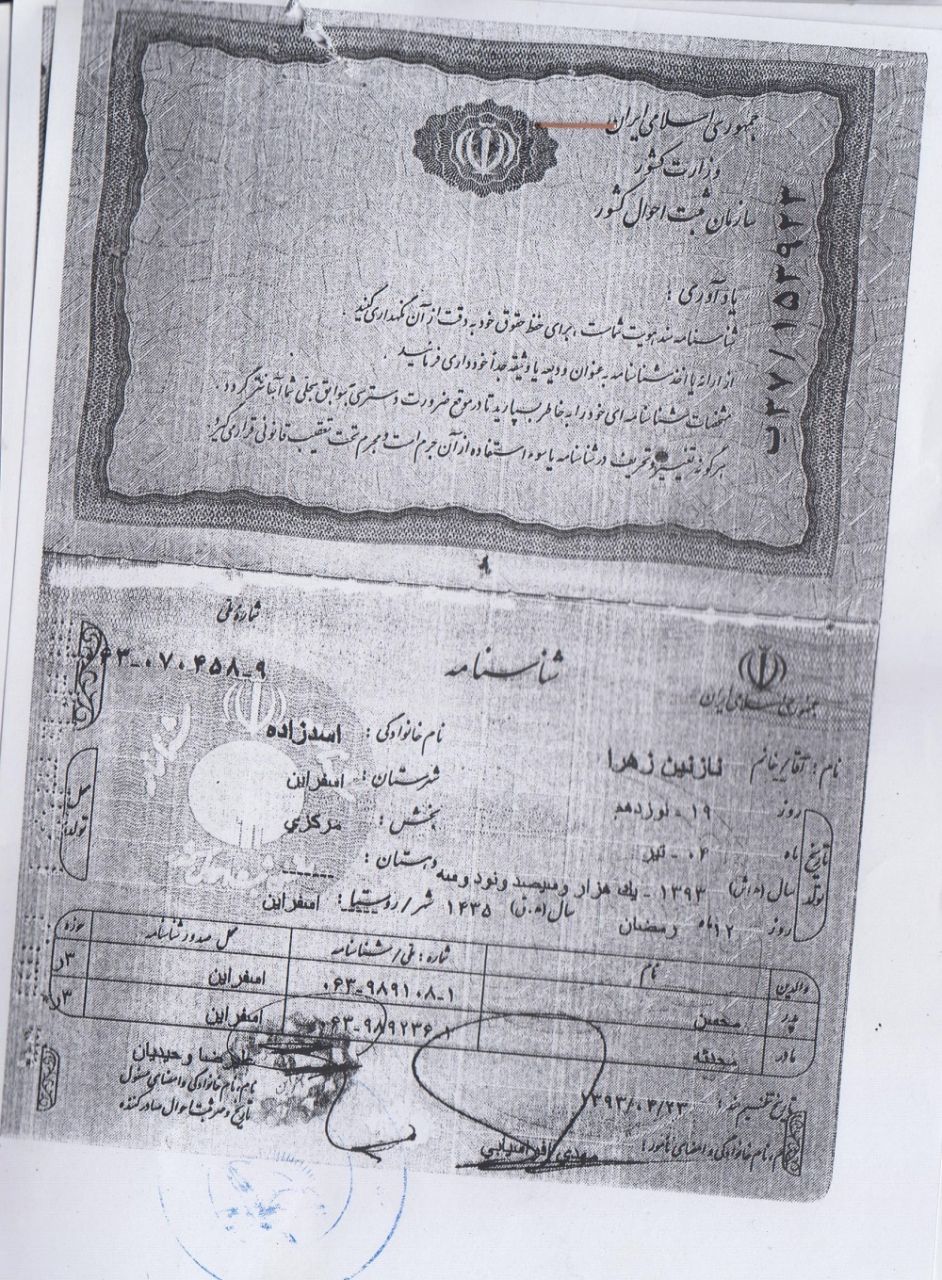 جمهوری اسلامی ایران
وزارت کشور
سازمان ثبت احوال کشور
ب۲۷/۱۵۲۹۲۳
یادآوری :
شناسنامه سند هویت شماست ، برای حفظ حقوق خود به دقت از آن نگهداری کنید .
از ارائه یا اخذ شناسنامه به عنوان ودیعه یا وثیقه جداً خودداری فرمائید .
مشخصات شناسنامه ای خود را به خاطر بسپارید تا در موقع ضرورت دسترسی به سوابق سجلی شما آسانتر گردد .
هرگونه تغییر و تحریف در شناسنامه یا سوء استفاده از آن جرم است و مجرم تحت تعقیب قانونی قرار می گیرد.
شماره ملی
۶۳-۰۷۰۴۵۸-۹
شناسنامه
جمهوری اسلامی ایران
نام : آقا/خانم نازنین زهرا
نام خانوادگی : اسدزاده
تاریخ تولد
روز ۱۹ - نوزدهم
ماه ۰۴ - تیر
سال (ه.ش) ۱۳۹۳ - یک هزار و سیصد و نود و سه
روز ۱۲ ماه رمضان
سال (ه.ق) ۱۴۳۵
محل تولد
شهرستان : اسفراین
بخش : مرکزی
دهستان : ------
شهر/روستا : اسفراین
والدین نام شماره : ملی/شناسنامه محل صدور شناسنامه حوزه
پدر محسن ۰۶۳-۹۸۹۱۰۸-۱ اسفراین ۳ر
مادر محدثه ۶۳-۹۸۹۲۳۶-۱ اسفراین ۳ر
تاریخ تنظیم سند : ۱۳۹۳/۰۴/۲۳
نام، نام خانوادگی و امضای مأمور : مهدی افراسیابی
علیرضا وحیدیان
نام، نام خانوادگی و امضای مسئول
تاریخ و مهر ثبت احوال صادرکننده